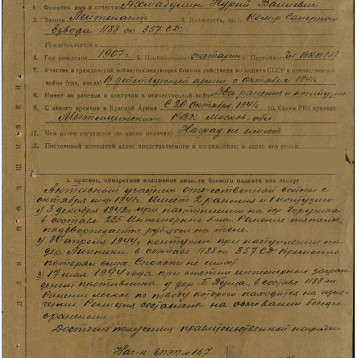 1. Фамилия, имя и отчество Ахмадулин Нурий Валиевич
2. Звание Лейтенант 3. Должность, часть Ком-р Саперного
взвода 1188 сп 357 СД
Представляется к
4. Год рождения 1907 г. 5. Национальность татарин 6. Партийность Чл. ВКП(б)
7. Участие в гражданской войне, последующих боевых действиях по защите СССР и отечественной
войне (где, когда) В действующей армии с октября 1941 г.
8. Имеет ли ранения и контузии в отечественной войне Два ранения и контузию
9. С какого времени в Красной Армии С 20 Октября 1941 г. 10. Каким РВК призван
Мытищинским РВК Москов. обл.
11. Чем ранее награжден (за какие отличия) Наград не имеет
12. Постоянный домашний адрес представляемого к награждению и адрес его семьи
I. Краткое, конкретное изложение личного боевого подвига или заслуг
Активный участник отечественной войны с
октября м-ца 1941 г. Имеет 2 ранения и 1 контузию
1) 3 декабря 1942 г. при наступлении на дер.
в составе 225 Ранение тяжелое,
подтверждается рубцом на теле.
2) 30 апреля 1944, контужен при наступлении на
дер. в составе 1188 сп 357 СД Временно
потерял слух
3) 17 мая 1944 года при снятии инженерных заграж-
дений противника у дер. в составе 1188 сп
Ранение легкое по поводу которого находится на изле-
чении. Реляция составлена на основании беседы
с раненым.
Достоин получения правительственной награды
Нач-к ЭПЭП № 167